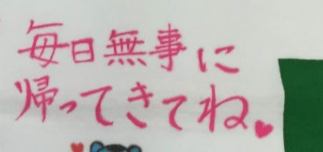 毎日無事に
帰ってきてね♥